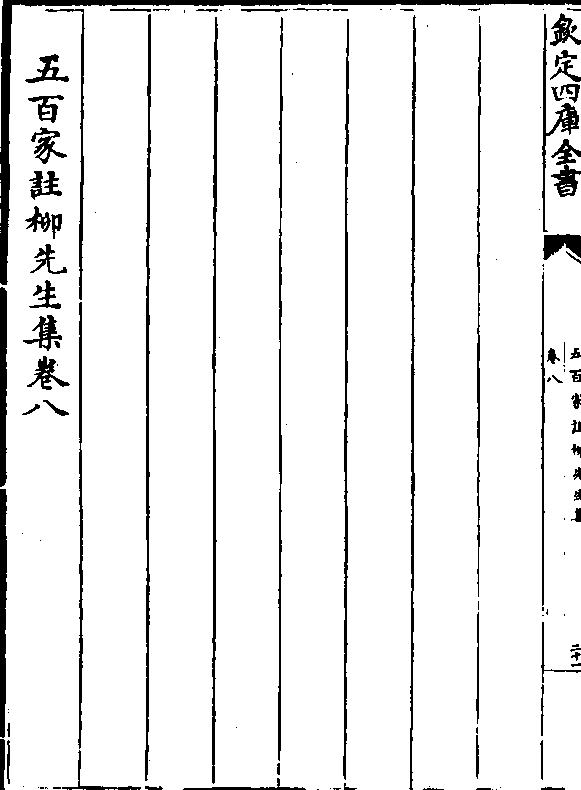 欽定四庫全書
五百家註柳先生集
卷八
二十一
五百家註柳先生集卷八